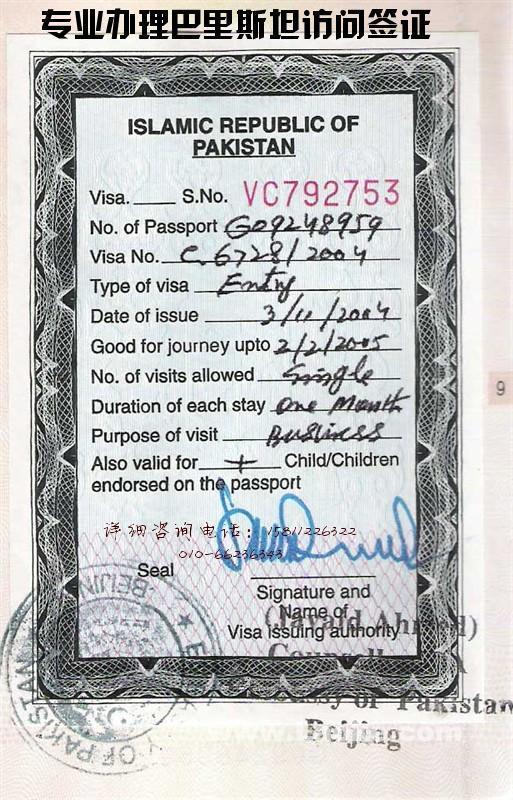 专业办理巴里斯坦访问签证
ISLAMIC REPUBLIC OF
PAKISTAN
Visa. ____ S.No. VC792753
No. of Passport G09248959
Visa No. C.6728/2004
Type of visa Entry
Date of issue 3/11/2004
Good for journey upto 2/2/2005
No. of visits allowed Single
Duration of each stay One Month
Purpose of visit Business
Also valid for + Child/Children
endorsed on the passport
详细咨询电话: 15811226322
010-66236343
Seal
Signature and
Name of
Visa issuing authority
(Javaid Ahmed)
Pakistan
Beijing
BEIJING
OF PAKISTAN
9